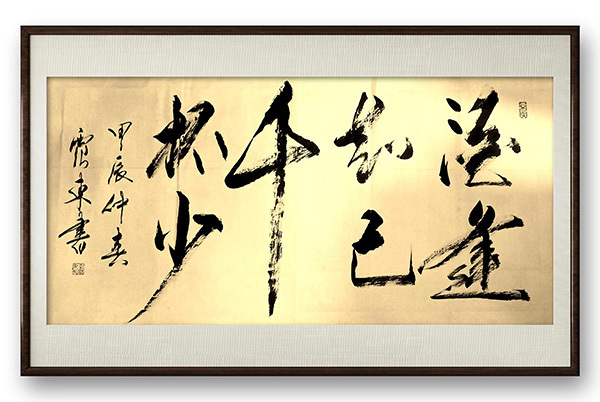 酒逢
知己
千
杯少
甲辰仲春
東書